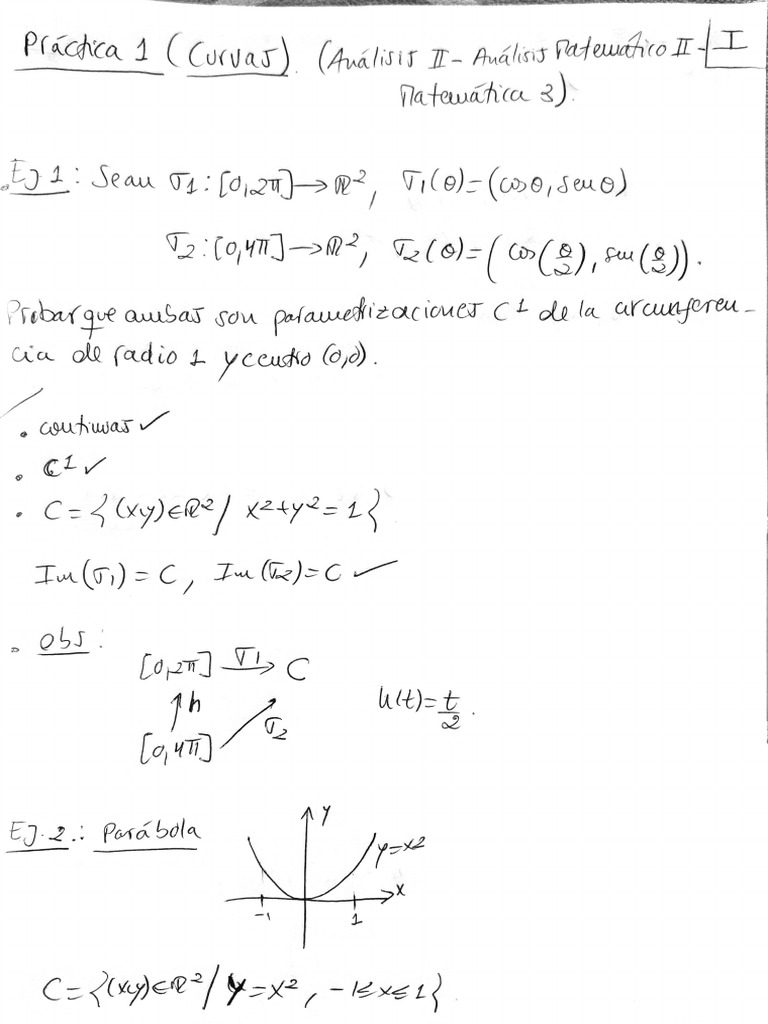 Práctica 1 (Curvas). (Análisis II - Análisis Matemático II - I
Matemática 3).
Ej 1: Sean σ1: [0,2π] → ℝ², σ1(θ) = (cos θ, sen θ)
σ2: [0,4π] → ℝ², σ2(θ) = (cos(θ/2), sen(θ/2)).
Probar que ambas son parametrizaciones C¹ de la circunferen-
cia de radio 1 y centro (0,0).
• continuas ✓
• C¹ ✓
• C = {(x,y) ∈ ℝ² / x² + y² = 1}
Im(σ1) = C, Im(σ2) = C ✓
• Obs:
[0,2π] σ1 → C
↑ h σ2 h(t) = t/2.
[0,4π]
Ej. 2.: Parábola
y
y = x²
x
-1 1
C = {(x,y) ∈ ℝ² / y = x², -1 ≤ x ≤ 1}.